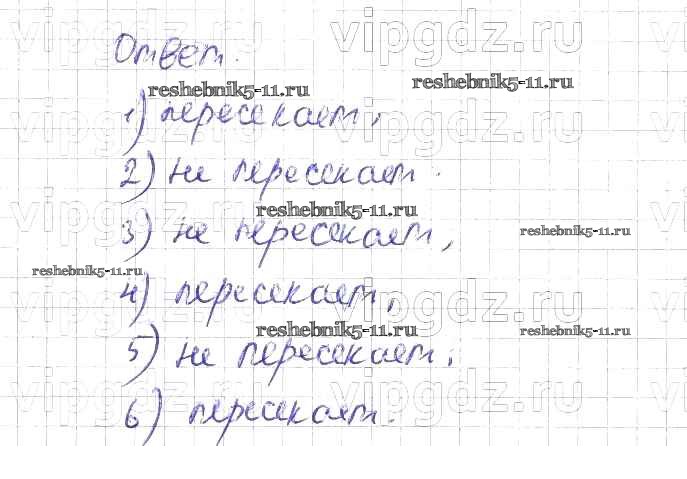 vipgdz.ru vipgdz.ru
Ответ.
reshebnik5-11.ru reshebnik5-11.ru
vipgdz.ru vipgdz.ru
1) пересекает,
vipgdz.ru vipgdz.ru
2) не пересекает.
vipgdz.ru vipgdz.ru
reshebnik5-11.ru
3) не пересекает,
reshebnik5-11.ru
reshebnik5-11.ru
vipgdz.ru vipgdz.ru
4) пересекает,
reshebnik5-11.ru reshebnik5-11.ru
5) не пересекает,
vipgdz.ru vipgdz.ru
6) пересекает.